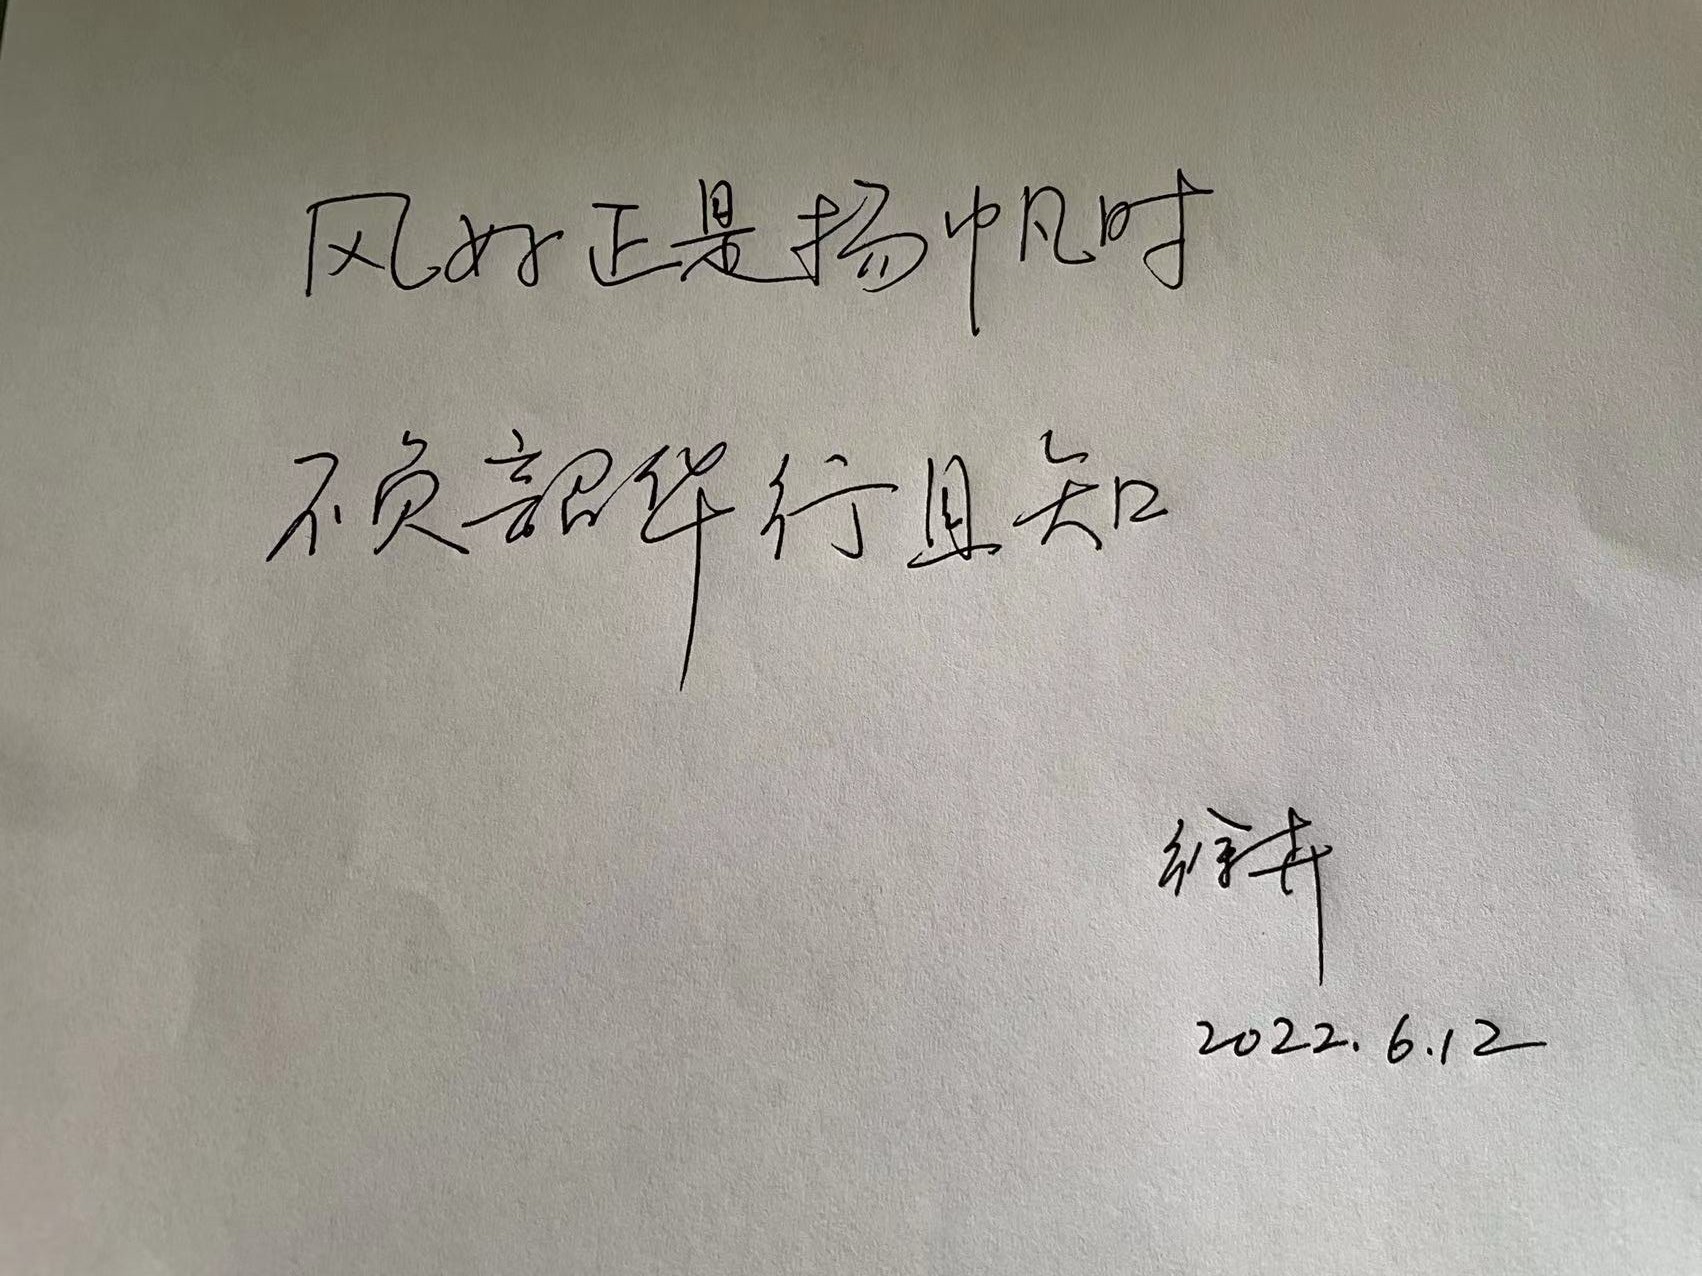 风好正是扬帆时
不负韶华行且知
徐卉
2022.6.12